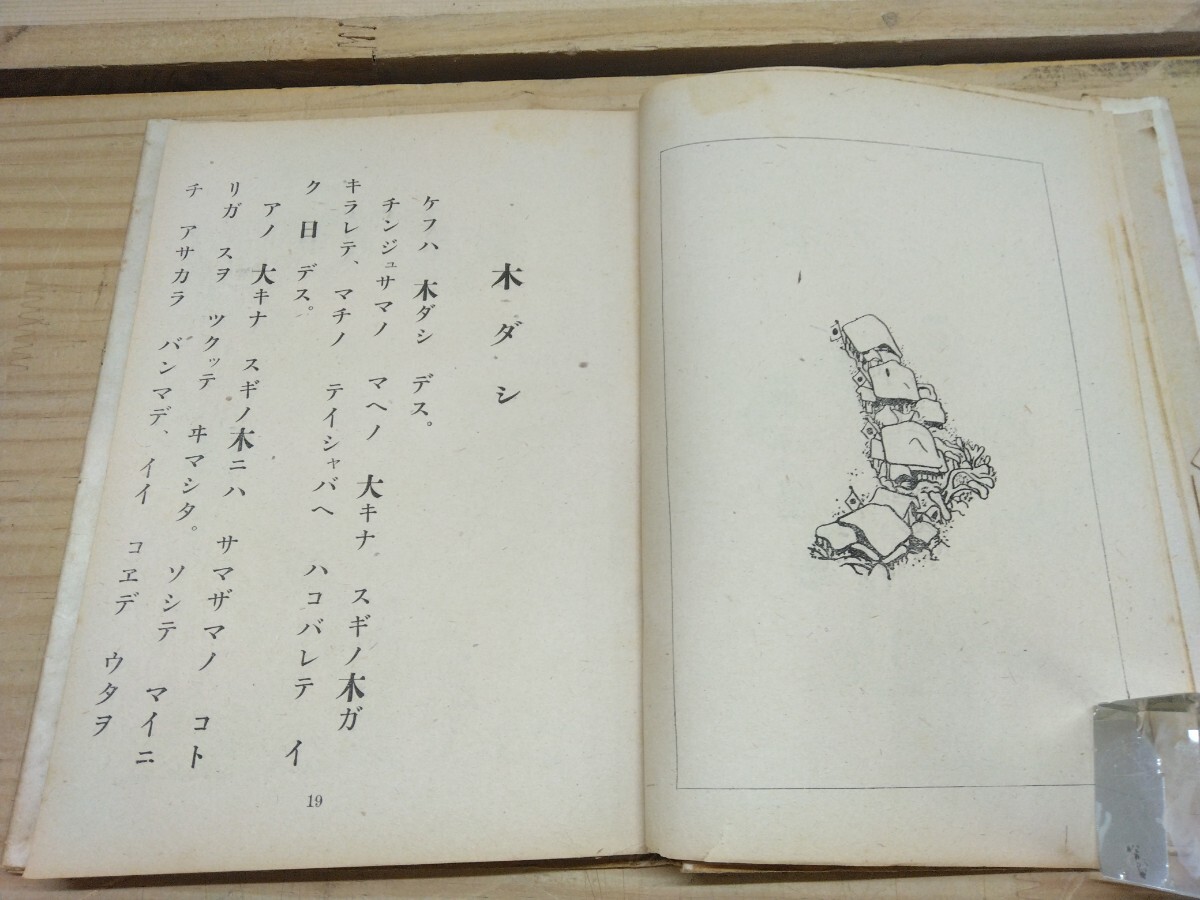 木ダシ
ケフハ 木ダシ デス。
チンジュサマノ マヘノ 大キナ スギノ木ガ
キラレテ、マチノ テイシャバヘ ハコバレテ イ
ク 日 デス。
アノ 大キナ スギノ木ニハ サマザマノ コト
リガ スヲ ツクッテ ヰマシタ。 ソシテ マイニ
チ アサカラ バンマデ、イイ コヱデ ウタヲ
19